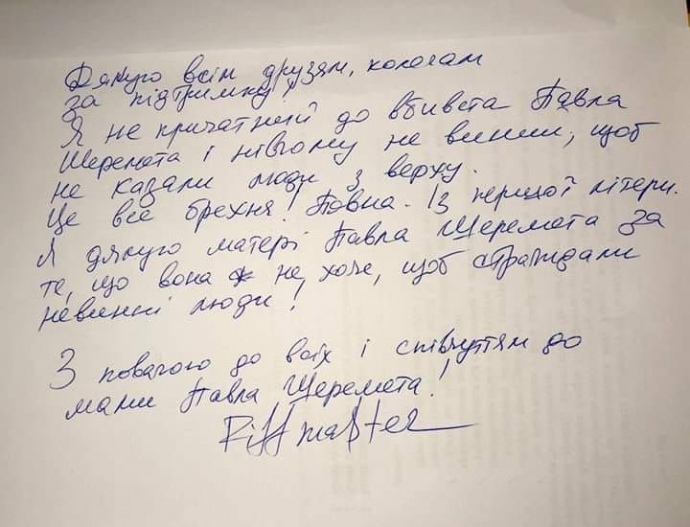 Дякую всім друзям, колегам
за підтримку!
Я не причатний до вбивста Павла
Шеремета і нівчому не винний, щоб
не казали люди з верху.
Це все брехня! Повна. Із першої літери.
Я дякую матері Павла Шеремета за
те, що вона не хоче, щоб страждали
невинні люди!
З повагою до всіх і співчуттям до
мами Павла Шеремета!
Riffmaster